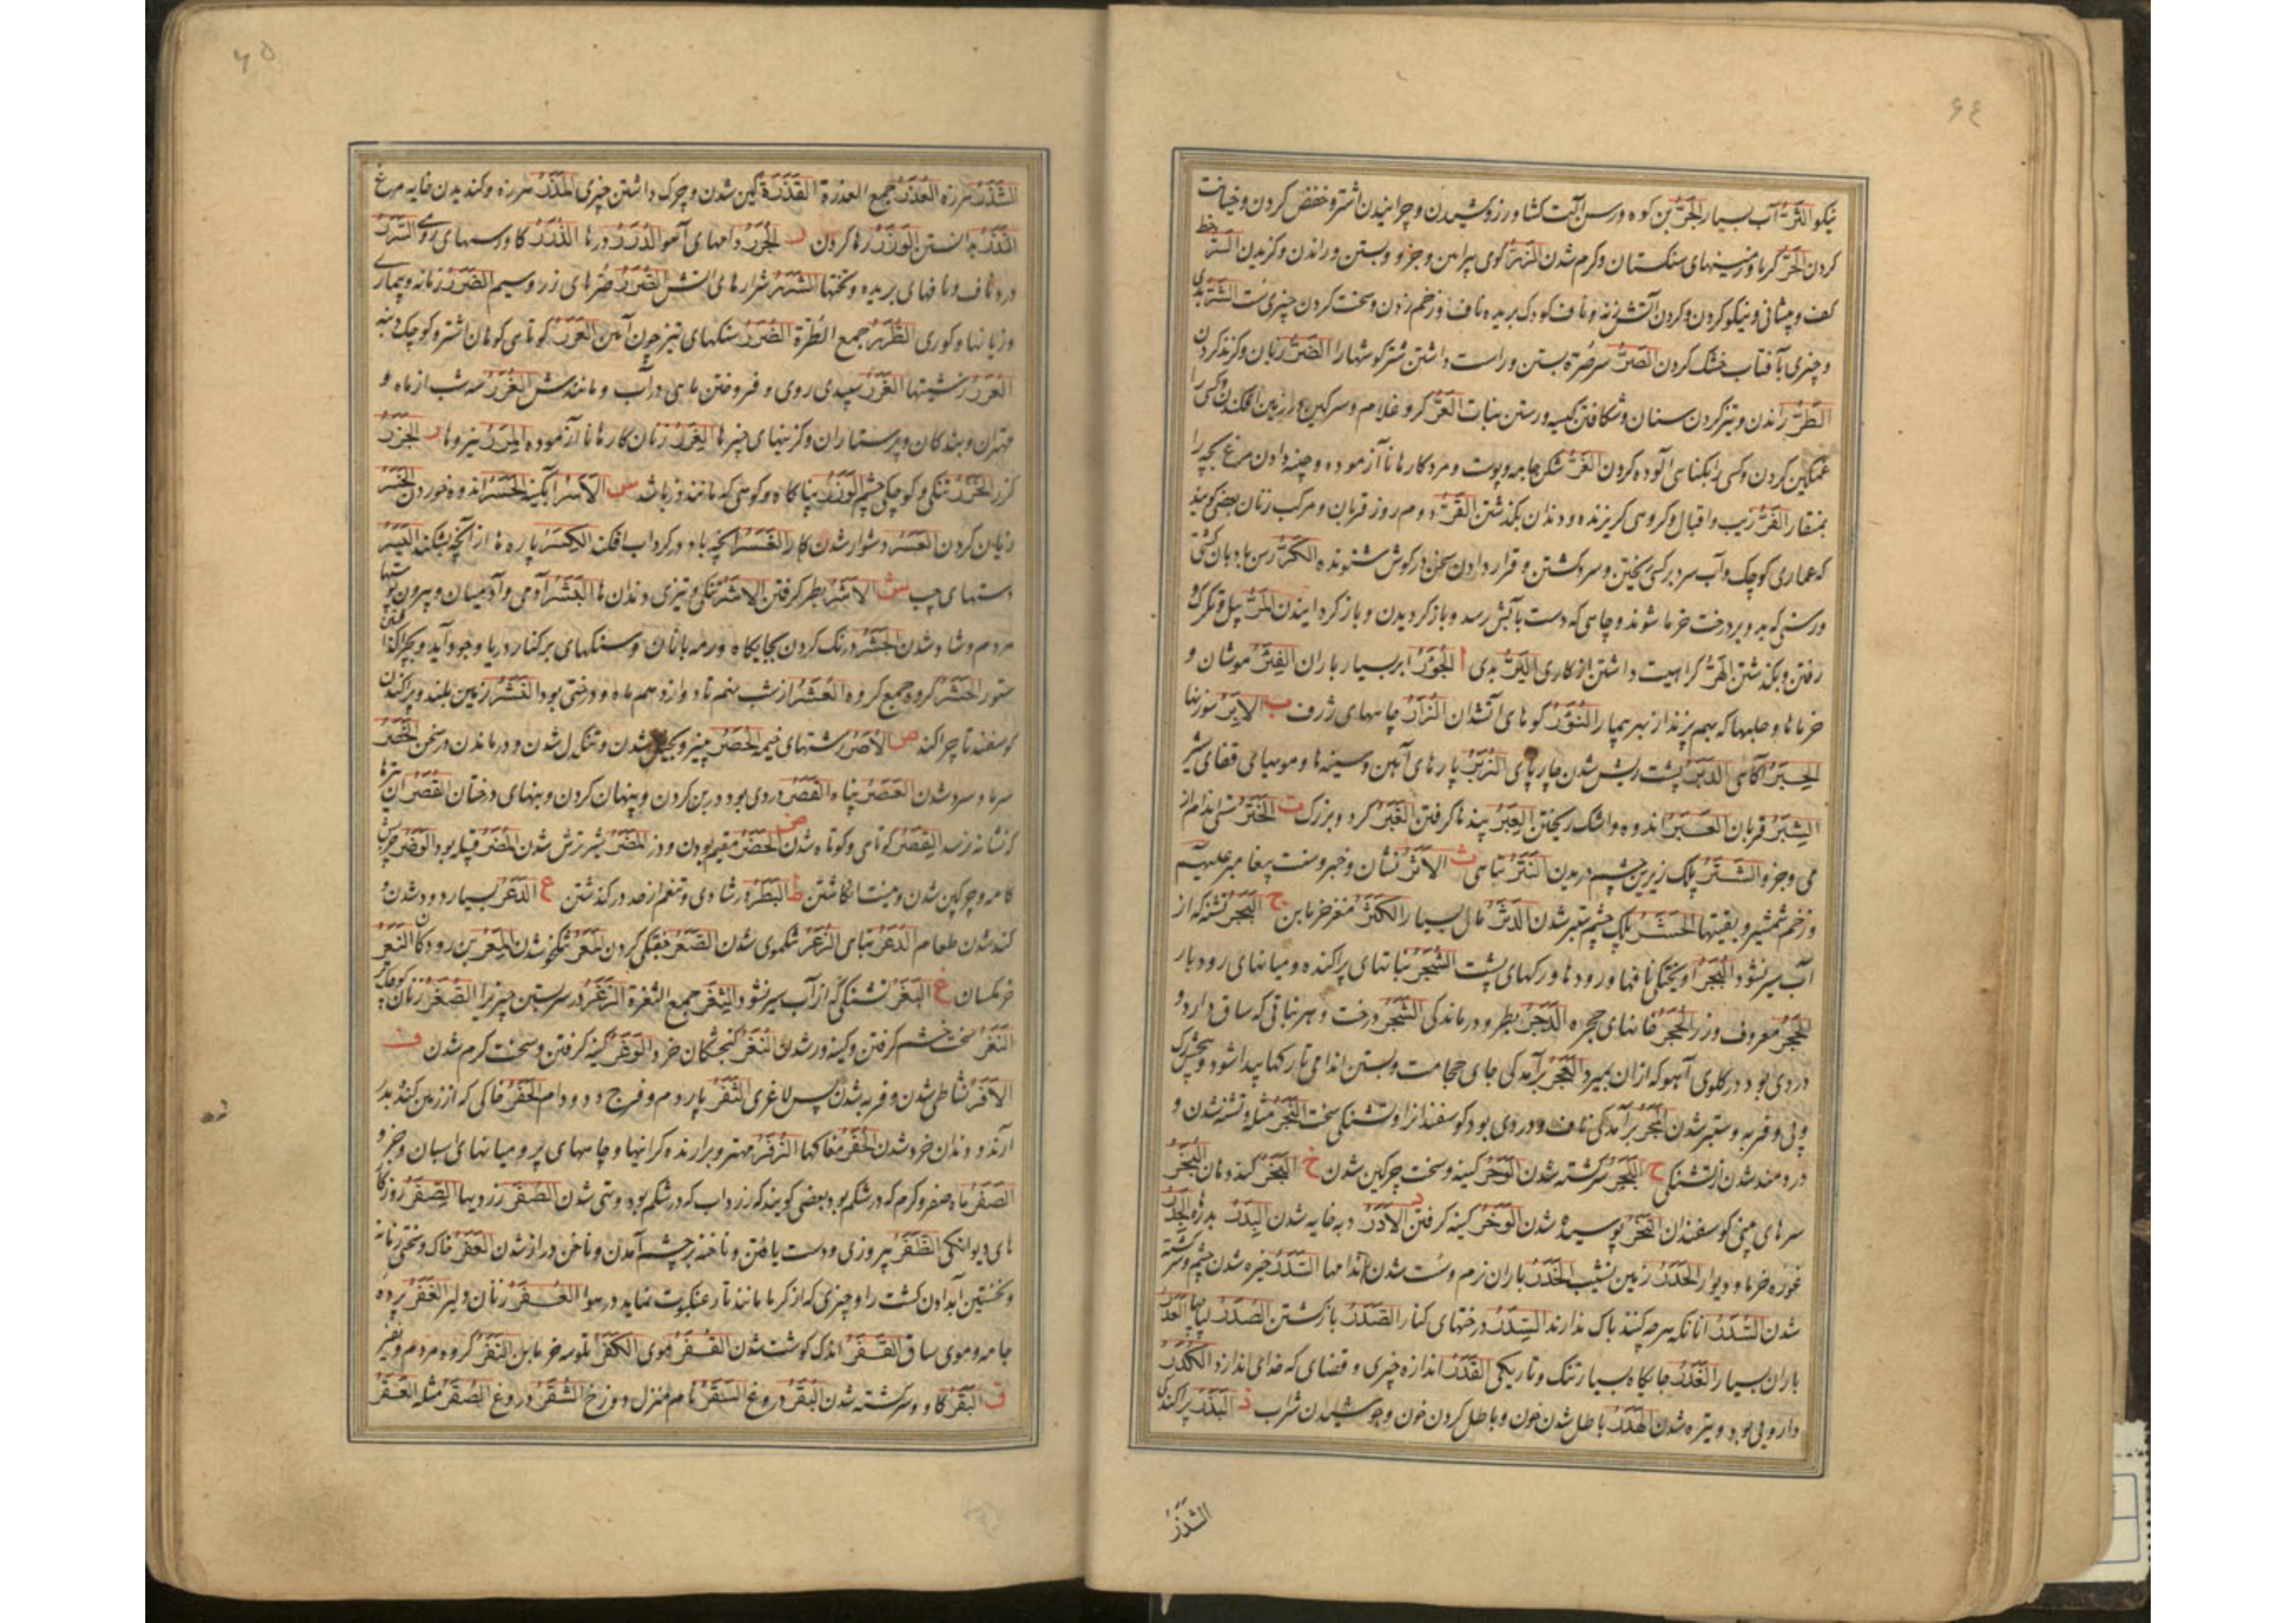 ۶۴
نیکو الثَرُّ آب بسیار الجَرُّ بن کوه و رسن آلت کشاورز و کشیدن و چرانیدن اشتر و خفض کردن و خیانت
کردن الحَرُّ کرما و زمینهای سنکستان و کرم شدن الزِرُّ کوی پیراهن و جزو و بستن و راندن و کزیدن السِرُّ خط
کف و پیشانی و نیکو کردن و کردن آتش زنه و ناف کودک بریده ناف و زخم زدن و سخت کردن چیزی الشَرُّ بدی
و چیزی بآفتاب خشک کردن الصَرُّ سر صُرّه بستن و راست داشتن شتر کوشها را الضَرُّ زیان و کزند کردن
الطَرُّ راندن و تیز کردن سنان و شکافتن کیسه و رستن نبات العَرُّ کر و غلام و سرکین در زمین افکندن و کسی را
غمکین کردن و کسی را بکناهی آلوده کردن الغَرُّ شکن جامه و پوست و مرد کارها ناآزموده و چینه دادن مرغ بچه را
بمنقار الفَرُّ زیب و اقبال و کروهی کریزنده و دندان بکذشتن القَرُّ دوم روز قربان و مرکب زنان بعضی کویند
که عماری کوچک و آب سرد بر کسی ریختن و سرد کشتن و قرار دادن سخن در کوش شنونده الکَرُّ رسن بادبان کشتی
و رسنی که بدو بر درخت خرما شوند و چاهی که دست بآبش رسد و باز کردیدن و باز کردانیدن المَرُّ بیل و
رفتن و بکذشتن الهَرُّ کراهیت داشتن از کاری الیَرُّ بدی ا الجُؤَرُ ابر بسیار باران الفِئَرُ موشان و
خرماها و حلبها که بهم پزند از بهر بیمار النُؤَرُ کوهای آتشدان ب الاِبَرُ سوزنها
الحِبَرُ آکاهی الدَبَرُ پشت ریش شدن چارپای الزُبَرُ پارهای آهن و سینه ها و مویهای قفای شیر
الشَبَرُ قربان العَبَرُ اندوه و اشک ریختن العِبَرُ پندها کرفتن الغَبَرُ کرد و بزرک ت الخَتَرُ سستی اندام از
می و جز و الشَتَرُ پلک زیرین چشم دریدن النَتَرُ تباهی ث الاَثَرُ نشان و خبر و سنت پیغامبر علیهم
و زخم شمشیر و بقیتها الحَثَرُ پلک چشم ستبر شدن الدَثَرُ مال بسیار الکَثَرُ مغز خرمابن ج البَجَرُ تشنه که از
آب سیر نشود البُجَرُ آویختکی نافها و رودها و رکهای پشت الثُجَرُ نباتهای پراکنده و میانهای رودبار
الحَجَرُ معروف و زر الحُجَرُ خانهای حجره الدَجَرُ بطر و درماندکی الشَجَرُ درخت و هر نباتی که ساق دارد و
دردی بود در کلوی آهو که ازان بمیرد العُجَرُ برآمدکی جای حجامت و بستن اندامی تا رکها پیدا شود
و فربه و ستبر شدن المَجَرُ برآمدکی ناف و دردی بود کوسفندانرا و تشنکی سخت النَجَرُ مثله و تشنه شدن و
دردمند شدن از تشنکی ح البَحَرُ سرکشته شدن الوَحَرُ کینه و سخت چرکین شدن خ البَخَرُ کنده دهان النُخَرُ
سرهای بینی کوسفندان النَخَرُ پوسیده شدن الوَخَرُ کینه کرفتن د الاَدَرُ دبه خایه شدن البِدَرُ بدرها الجَدَرُ
غوره خرما و دیوار الحَدَرُ زمین نشیب الخَدَرُ باران نرم و سست شدن اندامها السَدَرُ خیره شدن چشم و سرکشته
شدن السُدَرُ آنانکه هرچه کنند باک ندارند السِدَرُ درختهای کنار الصَدَرُ بازکشتن الصُدَرُ لباچها العَدَرُ
باران بسیار الغَدَرُ جایکاه بسیار تنک و تاریکی القَدَرُ اندازه چیزی و قضای که خدای اندازد الکَدَرُ
داروی بود و تیره شدن الهَدَرُ باطل شدن خون و باطل کردن خون و جوشیدن شراب ذ البَذَرُ پراکندکی
الشَذَرُ
۶۵
الشَذَرُ هرزه العُذَرُ جمع العذرة القَذَرَةُ کین شدن و چرک داشتن چیزی المَذَرُ هرزه و کندیدن خایه مرغ
النَذَرُ بدانستن الوَذَرُ رها کردن ر الجُرَرُ دامهای آهو الدُرَرُ درها الذُرَرُ کاورسهای روی السُرَرُ
درد ناف و نافهای بریده و تختها الشَرَرُ شرارهای آتش الصُرَرُ صرهای زر و سیم الضَرَرُ زمانه و بیماری
و زیانها و کوری الطُرَرُ جمع الطُرّة الظِرَرُ سنکهای تیز چون آهن العَرَرُ کوتاهی کوهان اشتر و کوچک دنبه
العُرَرُ زشتیها الغَرَرُ سپیدی روی و فروختن ماهی در آب و مانندش الغُرَرُ سه شب از ماه و
مهتران و بندکان و پرستاران و کزینهای چیزها الغِرَرُ زنان کارها ناآزموده المِرَرُ نیروها ز الجَزَرُ
کزر الخَزَرُ تنکی و کوچکی چشم الوَزَرُ پناکاه و کوهی که مانند دز باشد س الاَسَرُ آبکینه الحَسَرُ اندوه خوردن الخَسَرُ
زیان کردن العَسَرُ دشوار شدن کار الغَسَرُ آنچه باد در کرداب افکند الکِسَرُ پاره ها از آنچه بشکنند الیَسَرُ
دستهای چپ ش الاَشَرُ بطر کرفتن الاُشَرُ تنکی و تیزی دندان ها البَشَرُ آدمی و آدمیان و بیرون پوستها
مردم و شاد شدن الجَشَرُ درنک کردن بجایکاه و رمه باناث و سنکهای بر کنار دریا و جود آید و بچراکذاشتن
ستور الحَشَرُ کروه جمع کرده العُشَرُ از شب نهم تا دوازدهم ماه و درختی بود النَشَرُ زمین بلند و پراکندن
کوسفند تا چرا کند ص الاُصَرُ رشتهای خیمه الحَصَرُ پنیر و بخیل شدن و تنکدل شدن و درماندن در سخن الخَصَرُ
سرما و سرد شدن العَصَرُ پناه القَصَرُ دردی بود در بن کردن و پنهان کردن و بنهای درختان القِصَرُ آن تیرها
که نشانه نرسد القِصَرُ کوتاهی و کوتاه شدن ض الحَضَرُ مقیم بودن و دز المَضَرُ شیر ترش شدن المُضَرُ قبیله بود الوَضَرُ چربش
کامه و چرکین شدن و نیست انکاشتن ط البَطَرُ در شادی و تنعم از حد در کذشتن ع الدَعَرُ بسیار دود شدن و
کنده شدن طعام الدَعَرُ تباهی الزَعَرُ تنکموی شدن الصَعَرُ خفکی کردن المَعَرُ
خرمکسان غ البَغَرُ تشنکی که از آب سیر نشود الثُغَرُ جمع الثغرة الصِغَرُ
النَغَرُ سخت خشم کرفتن و کینه ور شدن النُغَرُ کنجشکان خرد الوَغَرُ کینه کرفتن و سخت کرم شدن ف
الاَفَرُ نشاطی شدن و فربه شدن پس لاغری الثَفَرُ پاردم و فرج دد و دام الحَفَرُ خاکی که از زمین کنند بدر
آرند و دندان خرد شدن الحُفَرُ مغاکها الزُفَرُ مهتر و بردارنده کرانیها و چاههای پر و میانهای اسبان و جز و
الصَفَرُ ماه صفر و کرم که در شکم بود و بعضی کویند که زرداب که در شکم بود و تهی شدن الصُفَرُ زردیها الصِفَرُ روزکا
های دیوانکی الظَفَرُ پیروزی و دست یافتن و ناخنه بر چشم آمدن و ناخن دراز شدن العَفَرُ خاک و سختی زمانه
و نخستین آبدادن کشت را و چیزی که از کرما مانند تار عنکبوت نماید در هوا العُفَرُ زنان دلیر الغَفَرُ پرده
جامه و موی ساق القَفَرُ اندک کوشت شدن القُفَرُ موی الکَفَرُ بلوسه خرمابن النَفَرُ کروه مردم و نفیر
ق البَقَرُ کاو و سرکشته شدن البُقَرُ دروغ السَقَرُ نام منزل دوزخ الشُقَرُ دروغ الصُقَرُ مثله العَقَرُ